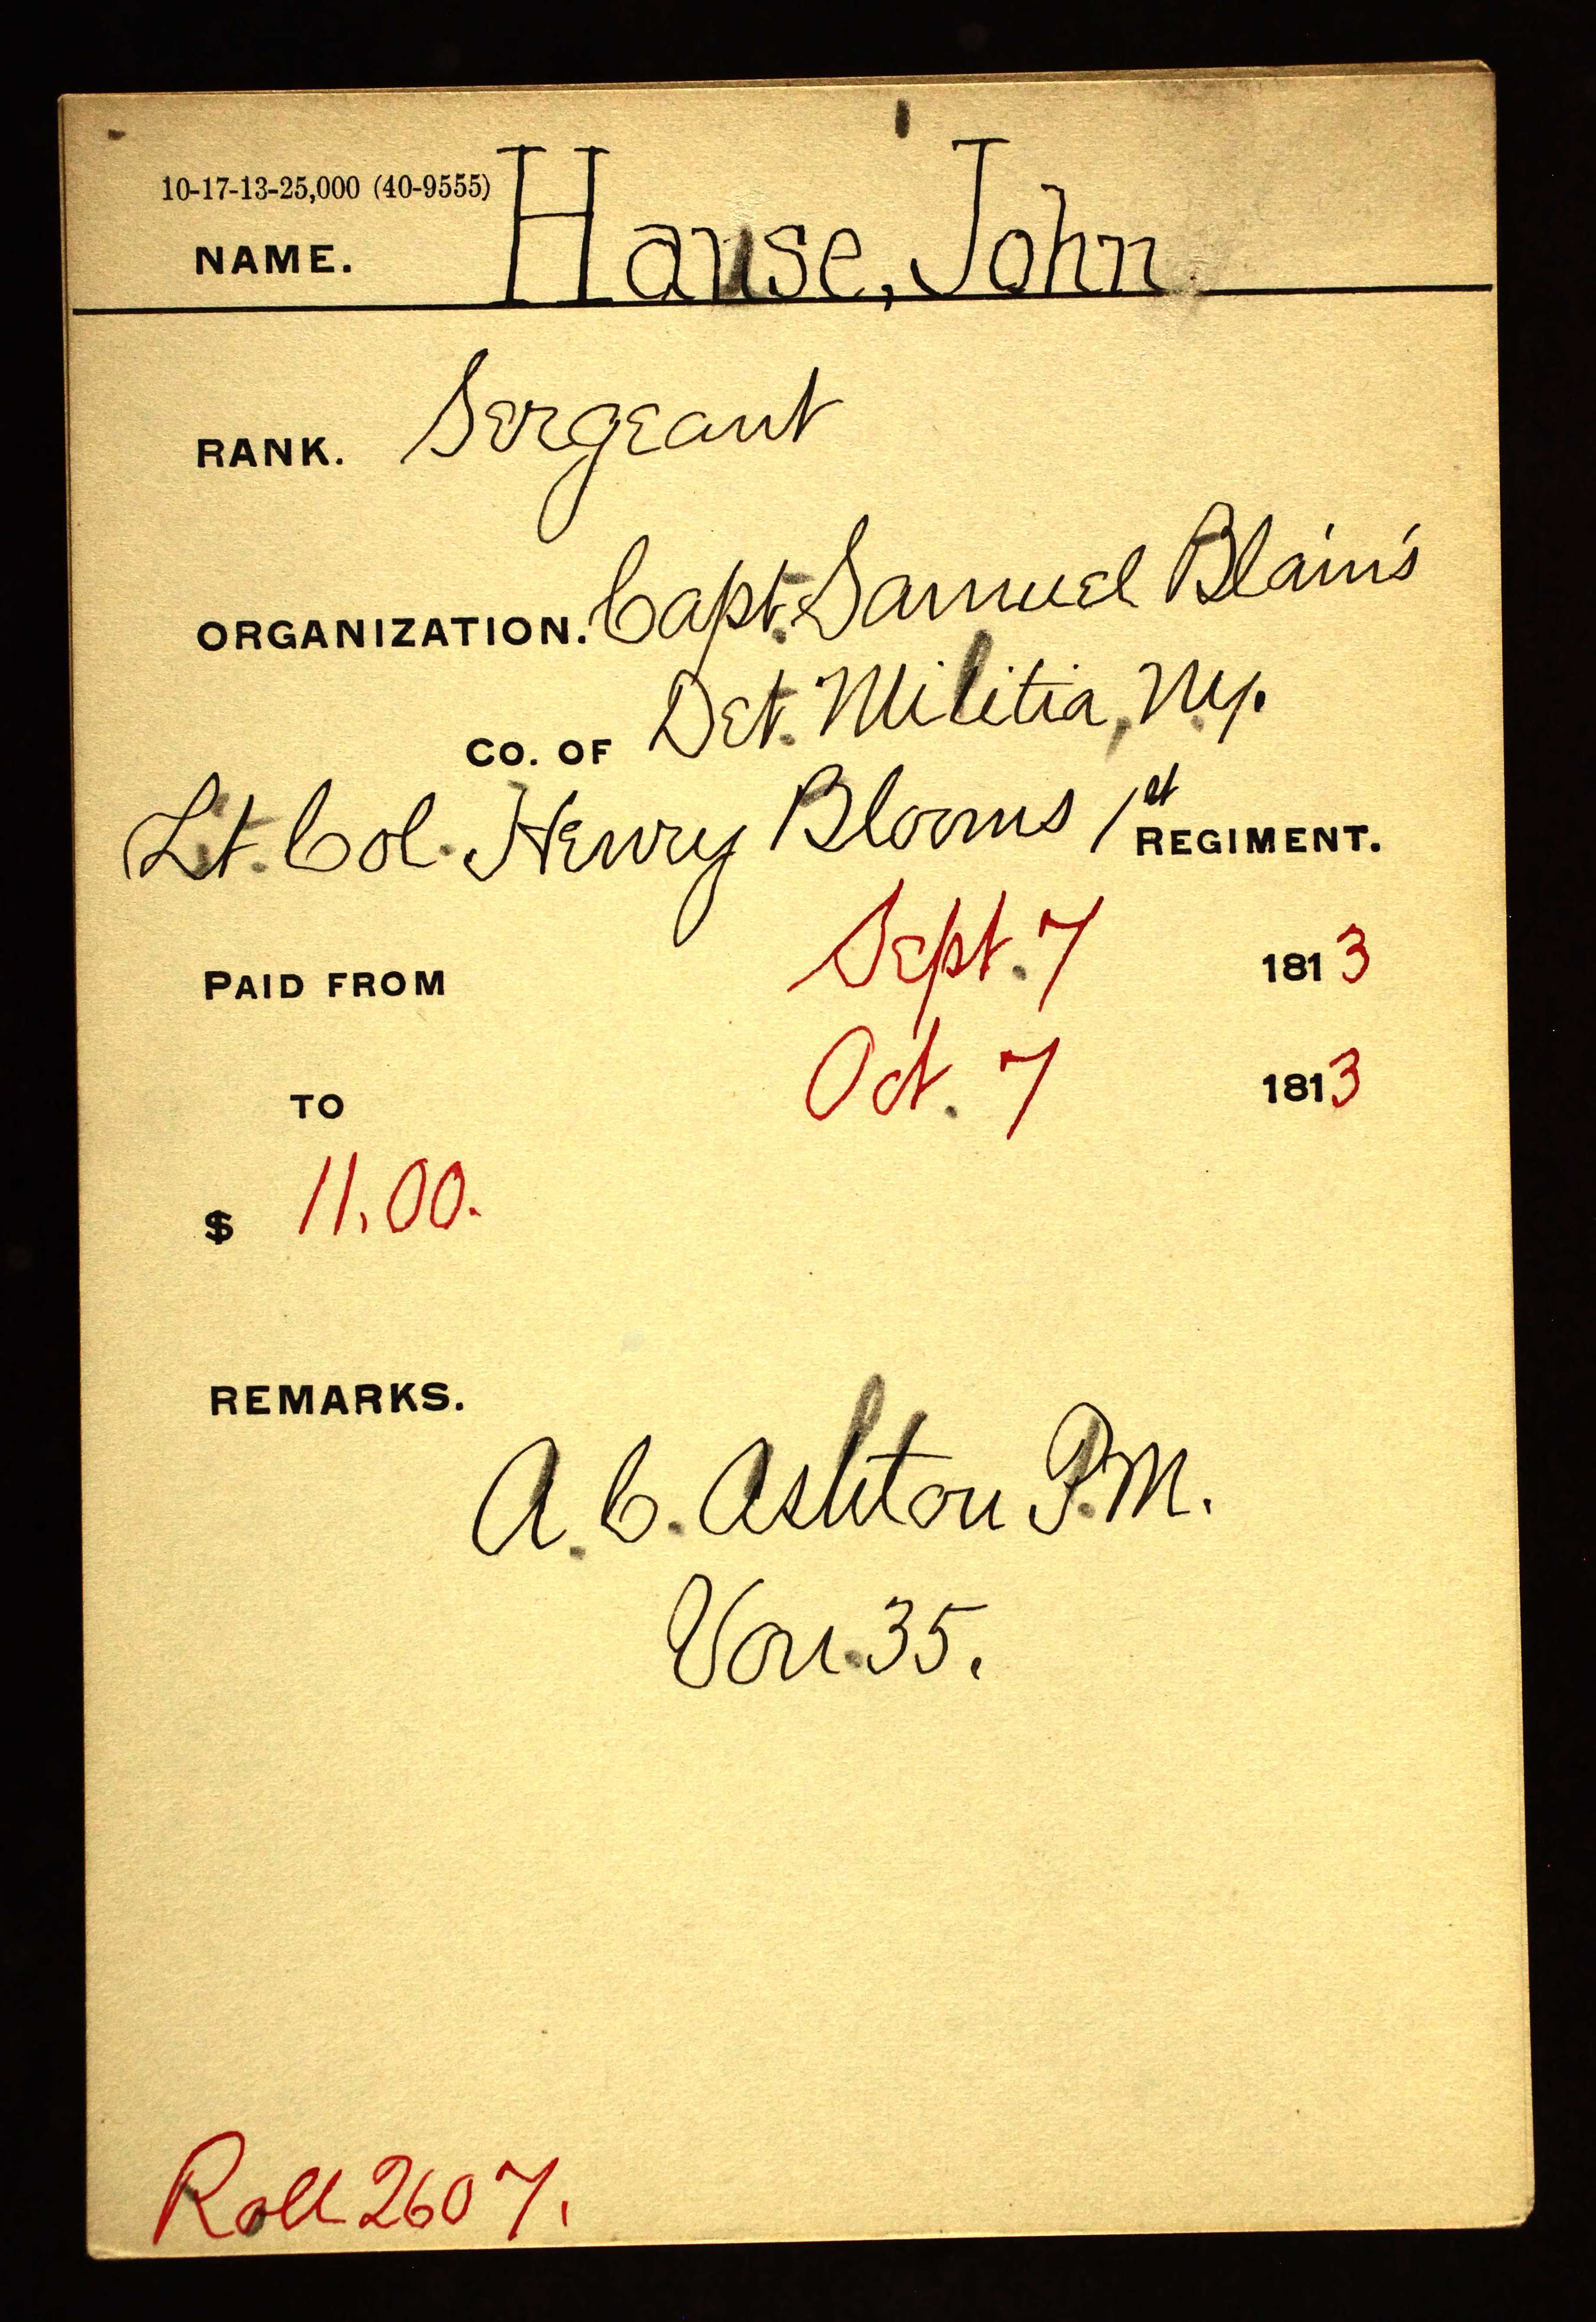 10-17-13-25,000 (40-9555)
NAME. Hause, John.
RANK. Sergeant
ORGANIZATION. Capt. Samuel Blain's
CO. OF Det. Militia, N.Y.
Lt. Col. Henry Blooms 1st REGIMENT.
PAID FROM Sept. 7 1813
TO Oct. 7 1813
$ 11.00.
REMARKS.
A. C. Ashton P.M.
Vou. 35.
Roll 2607.